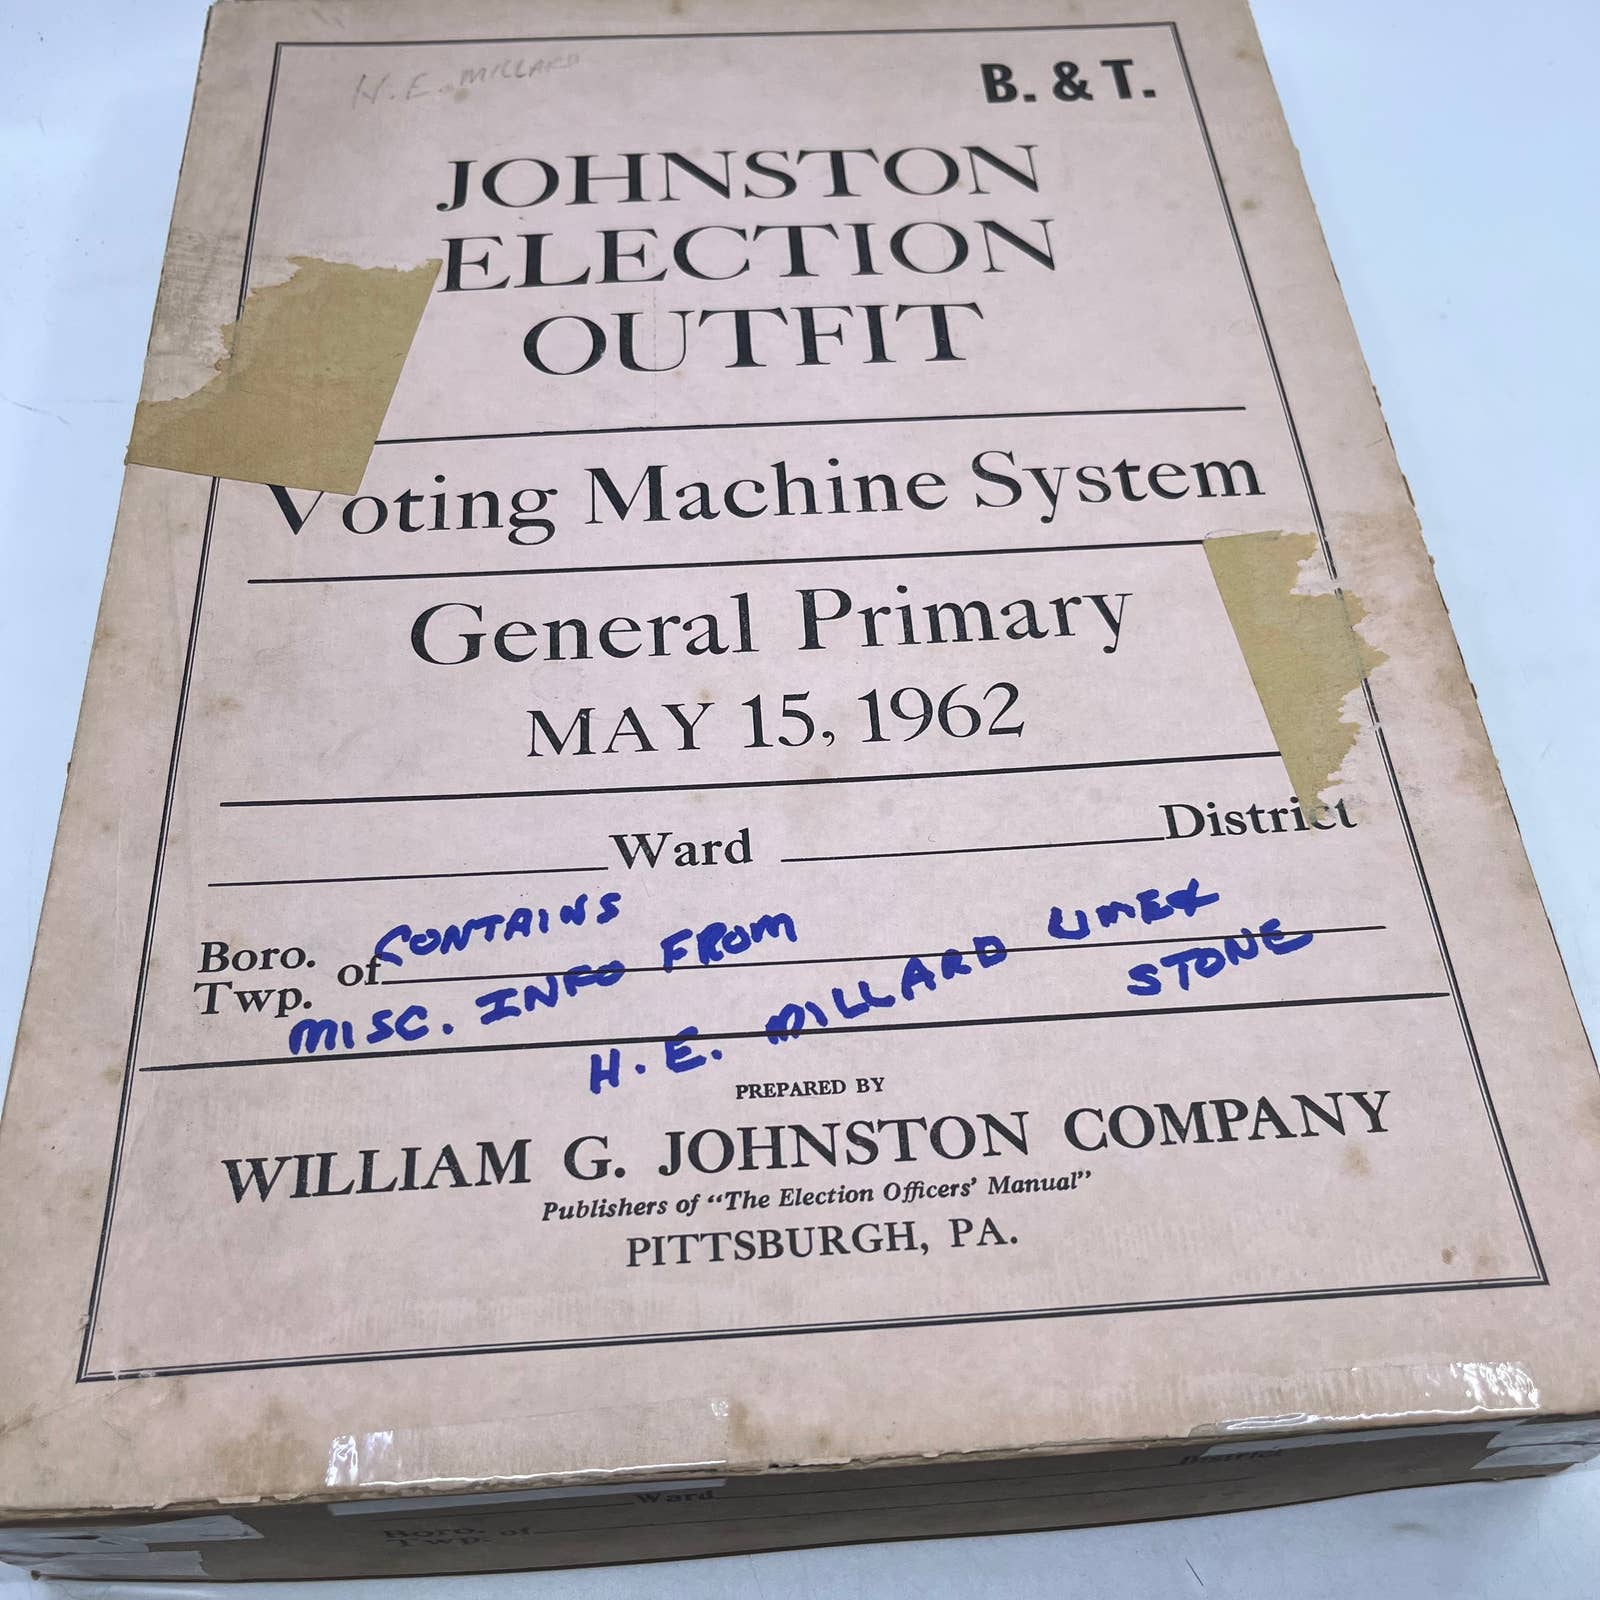 H. E. MILLARD
B. & T.
JOHNSTON
ELECTION
OUTFIT
Voting Machine System
General Primary
MAY 15, 1962
Ward District
Boro. of
Twp.
CONTAINS
MISC. INFO FROM
H. E. MILLARD LIMEX
STONE
PREPARED BY
WILLIAM G. JOHNSTON COMPANY
Publishers of “The Election Officers’ Manual”
PITTSBURGH, PA.
District
Ward
Boro. of
Twp.